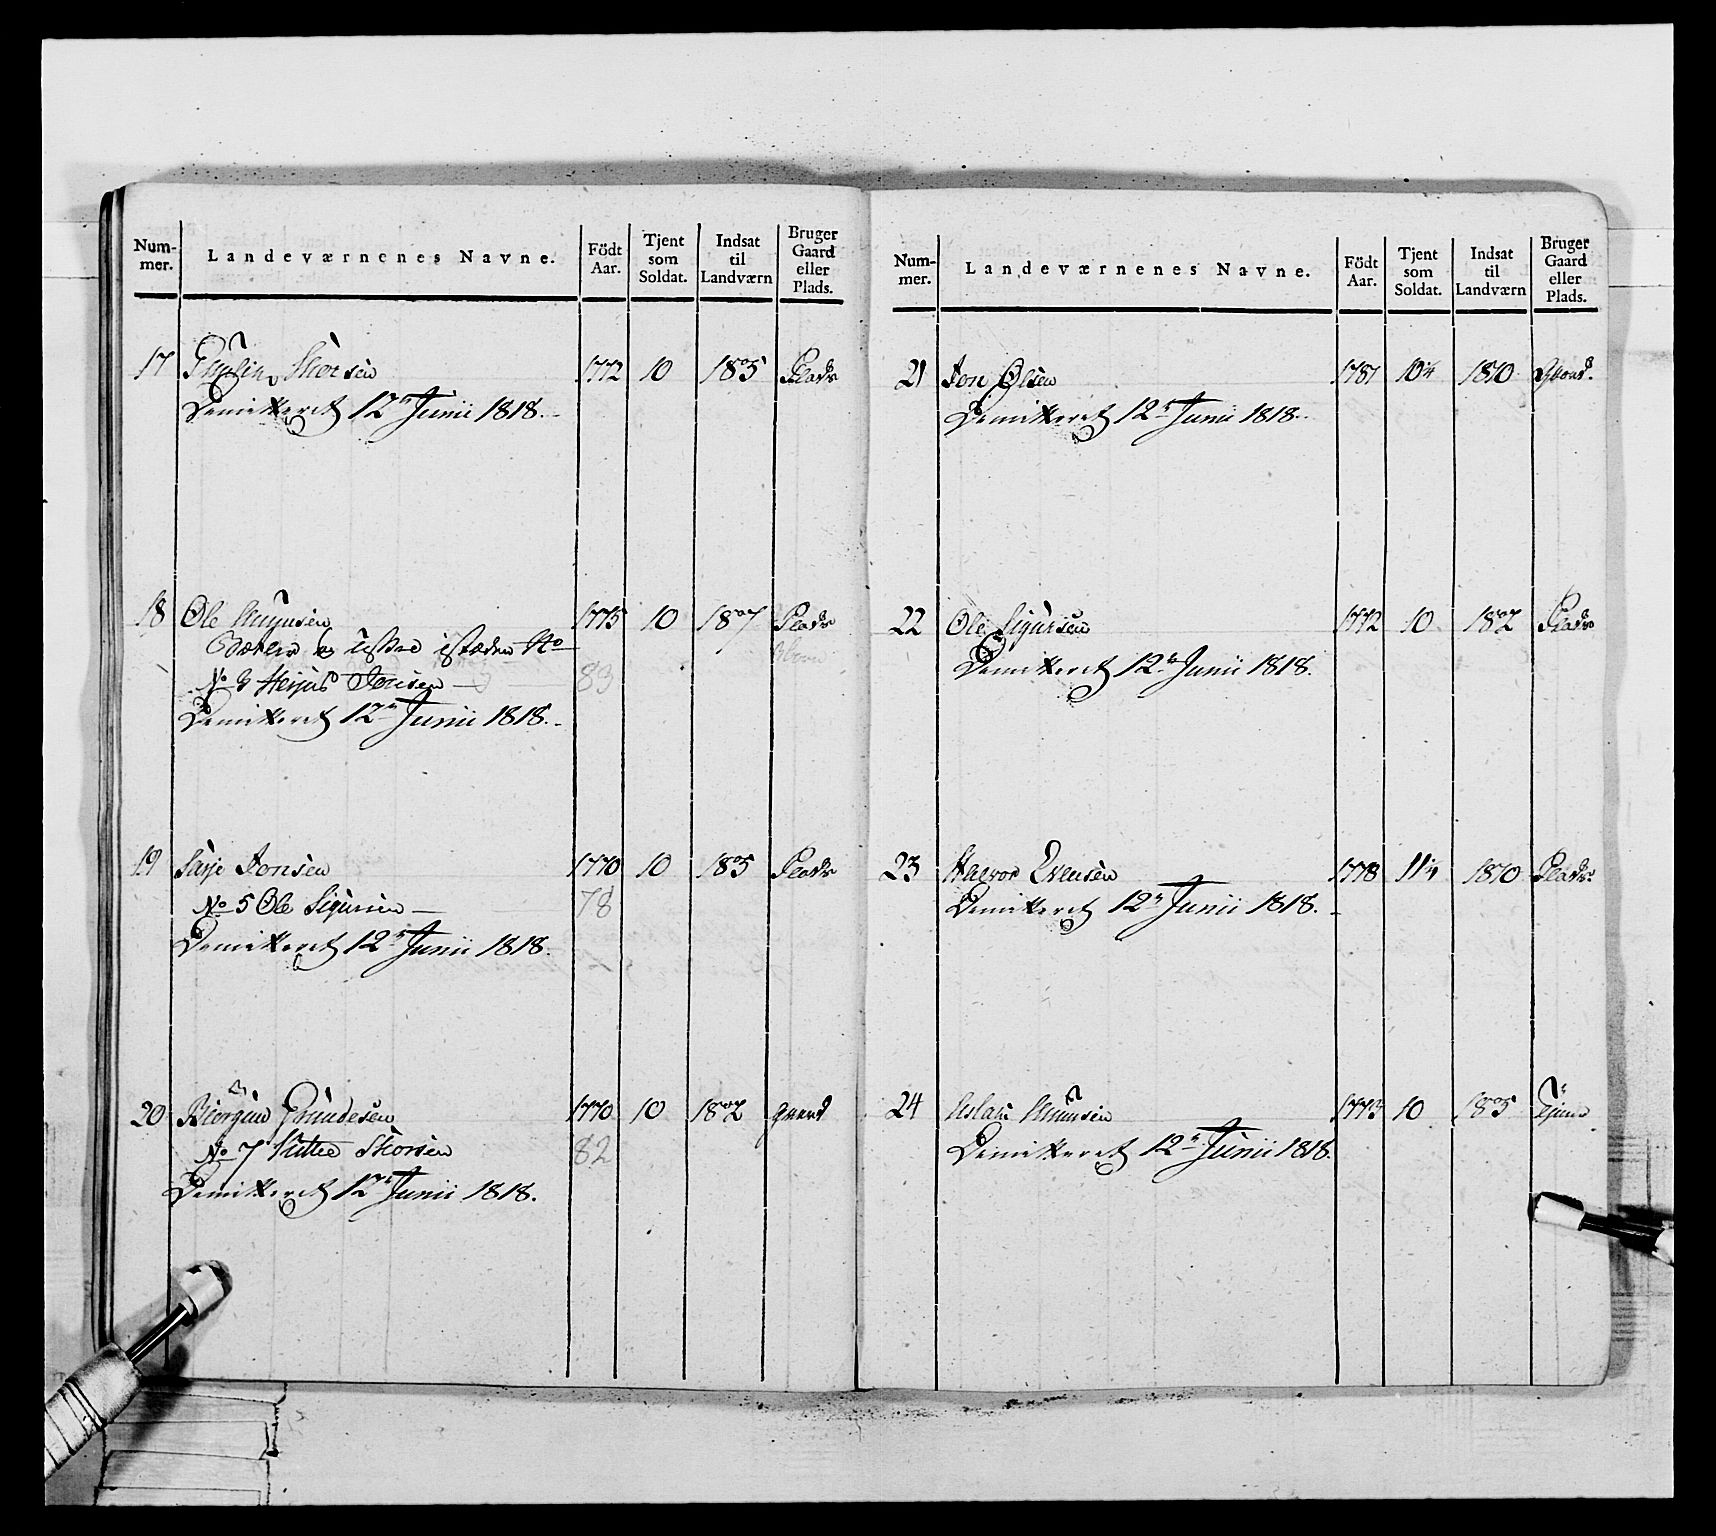 Num-
mer.
Landeværnenes Navne.
Födt
Aar.
Tjent
som
Soldat.
Indsat
til
Landværn
Bruger
Gaard
eller
Plads.
17 Torsen 1772 10 1805 Plads
Demitteret 12te Junii 1818.
18 Ole 1775 10 1807 Plads
istæden
No 3 Herjus Jonsen 83
Demitteret 12te Junii 1818.
19 Tarje Jonsen 1770 10 1805 Plads
No 5 Ole Sigursen 78
Demitteret 12te Junii 1818.
20 Biørgun Gundesen 1770 10 1802 Gaard
No 7 Kittel Thorsen 82
Demitteret 12te Junii 1818.
Num-
mer.
Landeværnenes Navne.
Födt
Aar.
Tjent
som
Soldat.
Indsat
til
Landværn
Bruger
Gaard
eller
Plads.
21 Jon Olsen 1781 10 1/4 1810 Gaard.
Demitteret 12te Junii 1818.
22 Ole Sigursen 1772 10 1802 Plads
Demitteret 12te Junii 1818.
23 Halvor Evensen 1778 11 1/4 1810 Plads
Demitteret 12te Junii 1818.
24 Aslak 1773 10 1805 Tjener
Demitteret 12te Junii 1818.